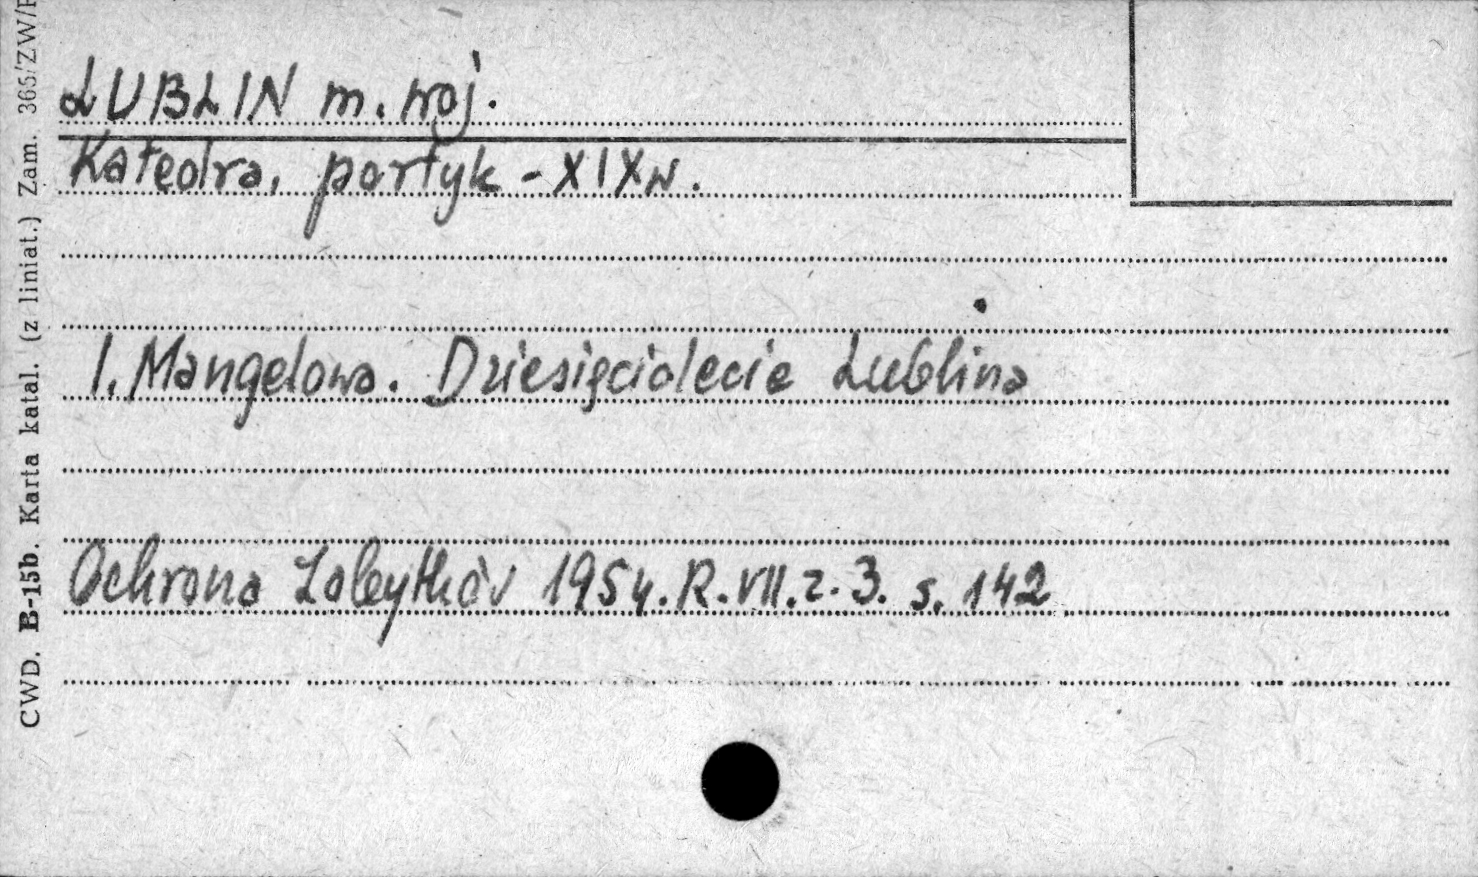 LUBLIN m. woj.
Katedra, portyk - XIX w.
I. Mangelowa. Dziesięciolecie Lublina
Ochrona Zabytków 1954. R. VII. z. 3. s. 142
CWD. B-15b. Karta katal. (z liniat.) Zam. 365/ZW/